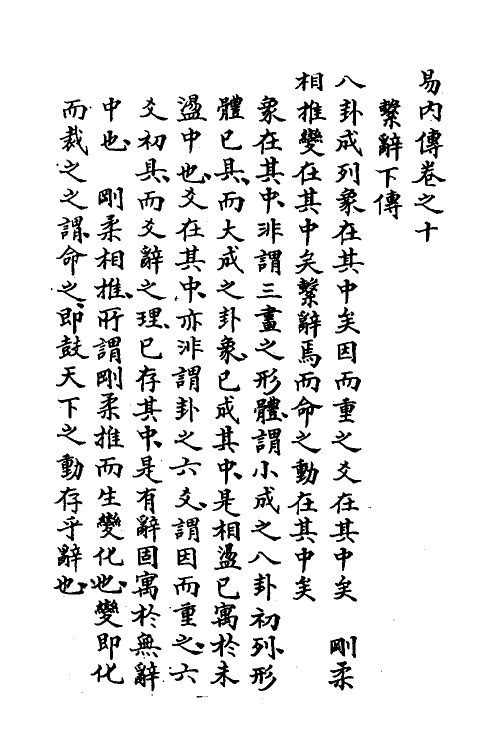 易內傳卷之十
繫辭下傳
八卦成列象在其中矣因而重之爻在其中矣　剛柔
相推變在其中矣繫辭焉而命之動在其中矣
象在其中、非謂三畫之形體、謂小成之八卦初列、形
體已具、而大成之卦象、已成其中、是相盪已寓於未
盪中也、爻在其中、亦非謂卦之六爻、謂因而重之、六
爻初具、而爻辭之理、已存其中、是有辭固寓於無辭
中也　剛柔相推、所謂剛柔推而生變化也、變即化
而裁之之謂、命之、即鼓天下之動存乎辭也、